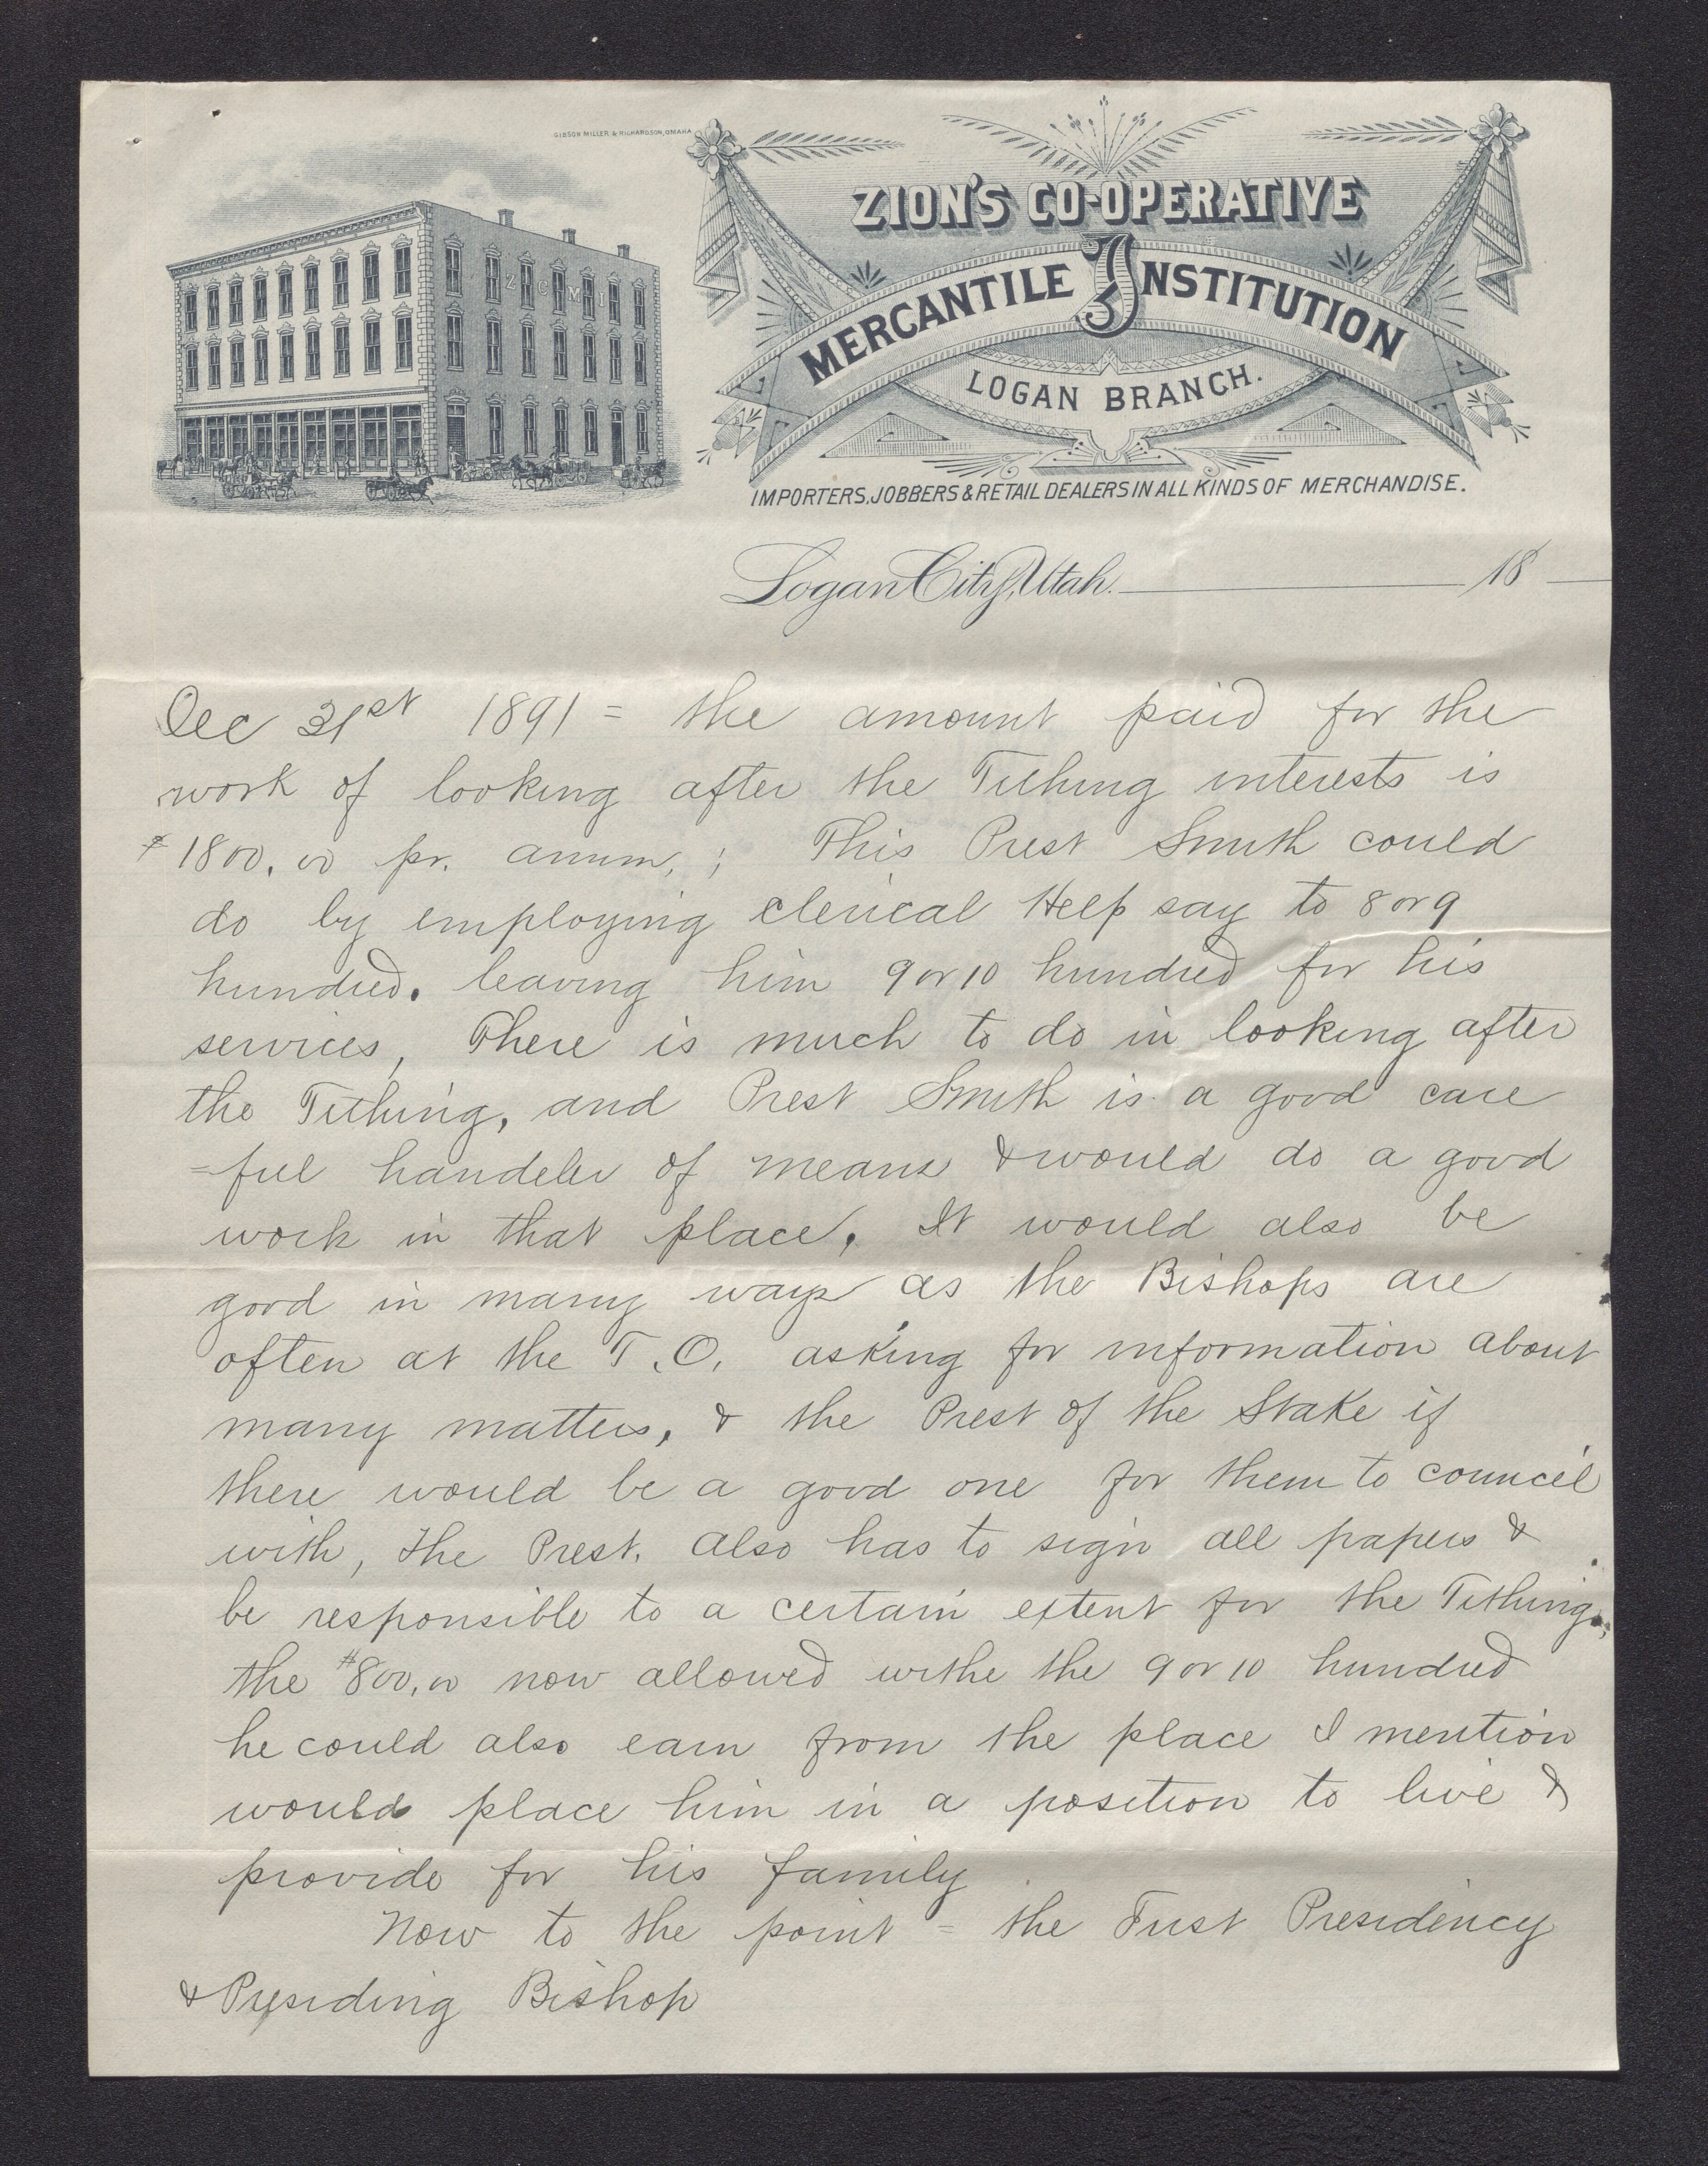 GIBSON MILLER & RICHARDSON, OMAHA
Z C M I
ZION'S CO-OPERATIVE
MERCANTILE INSTITUTION
LOGAN BRANCH.
IMPORTERS, JOBBERS & RETAIL DEALERS IN ALL KINDS OF MERCHANDISE.
Logan City, Utah. 18
Dec 31st 1891 = the amount paid for the
work of looking after the Tithing interests is
$1800.00 pr. annum, ; This Prest Smith could
do by employing clerical Help say to 8 or 9
hundred. leaving him 9 or 10 hundred for his
services, There is much to do in looking after
the Tithing, and Prest Smith is a good care
=ful handeler of means & would do a good
work in that place. It would also be
good in many ways as the Bishops are
often at the T.O. asking for information about
many matters, & the Prest of the Stake if
there would be a good one for them to council
with, the Prest. also has to sign all papers &
be responsible to a certain extent for the Tithing.
the $800.00 now allowed withe the 9 or 10 hundred
he could also earn from the place I mention
would place him in a position to live &
provide for his family
Now to the point = the First Presidency
& Presiding Bishop